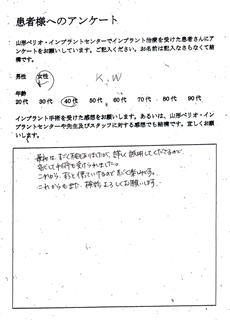 患者様へのアンケート
山形ペリオ・インプラントセンターでインプラント治療を受けた患者さんにア
ンケートをお願いしています。ご記入ください。お名前は記入なさらなくて結
構です。
男性 女性 K.W
年齢
20代 30代 40代 50代 60代 70代 80代 90代
インプラント手術を受けた感想をお願いします。あるいは、山形ペリオ・イン
プラントセンターや先生及びスタッフに対する感想でも結構です。宜しくお願
いします。
最初は、すごく不安でしたが、詳しく説明してくださるので、
安心して手術を受けられました。
これから、ずっと使っていけるのですごく楽しみです。
これからもまた、検診よろしくお願いします。